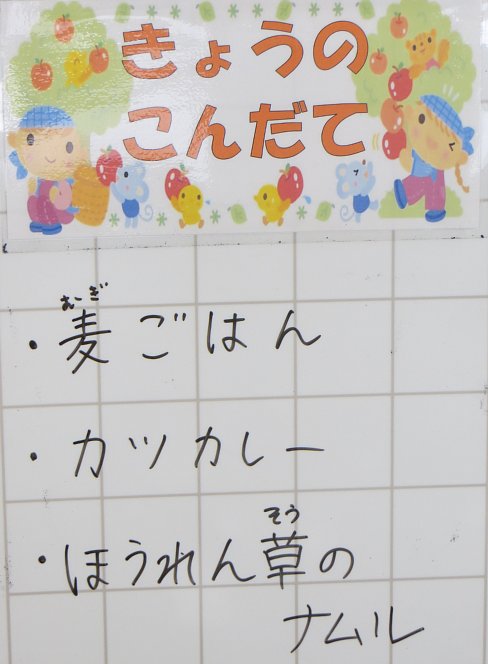 きょうの
こんだて
むぎ
・麦ごはん
・カツカレー
そう
・ほうれん草の
ナムル